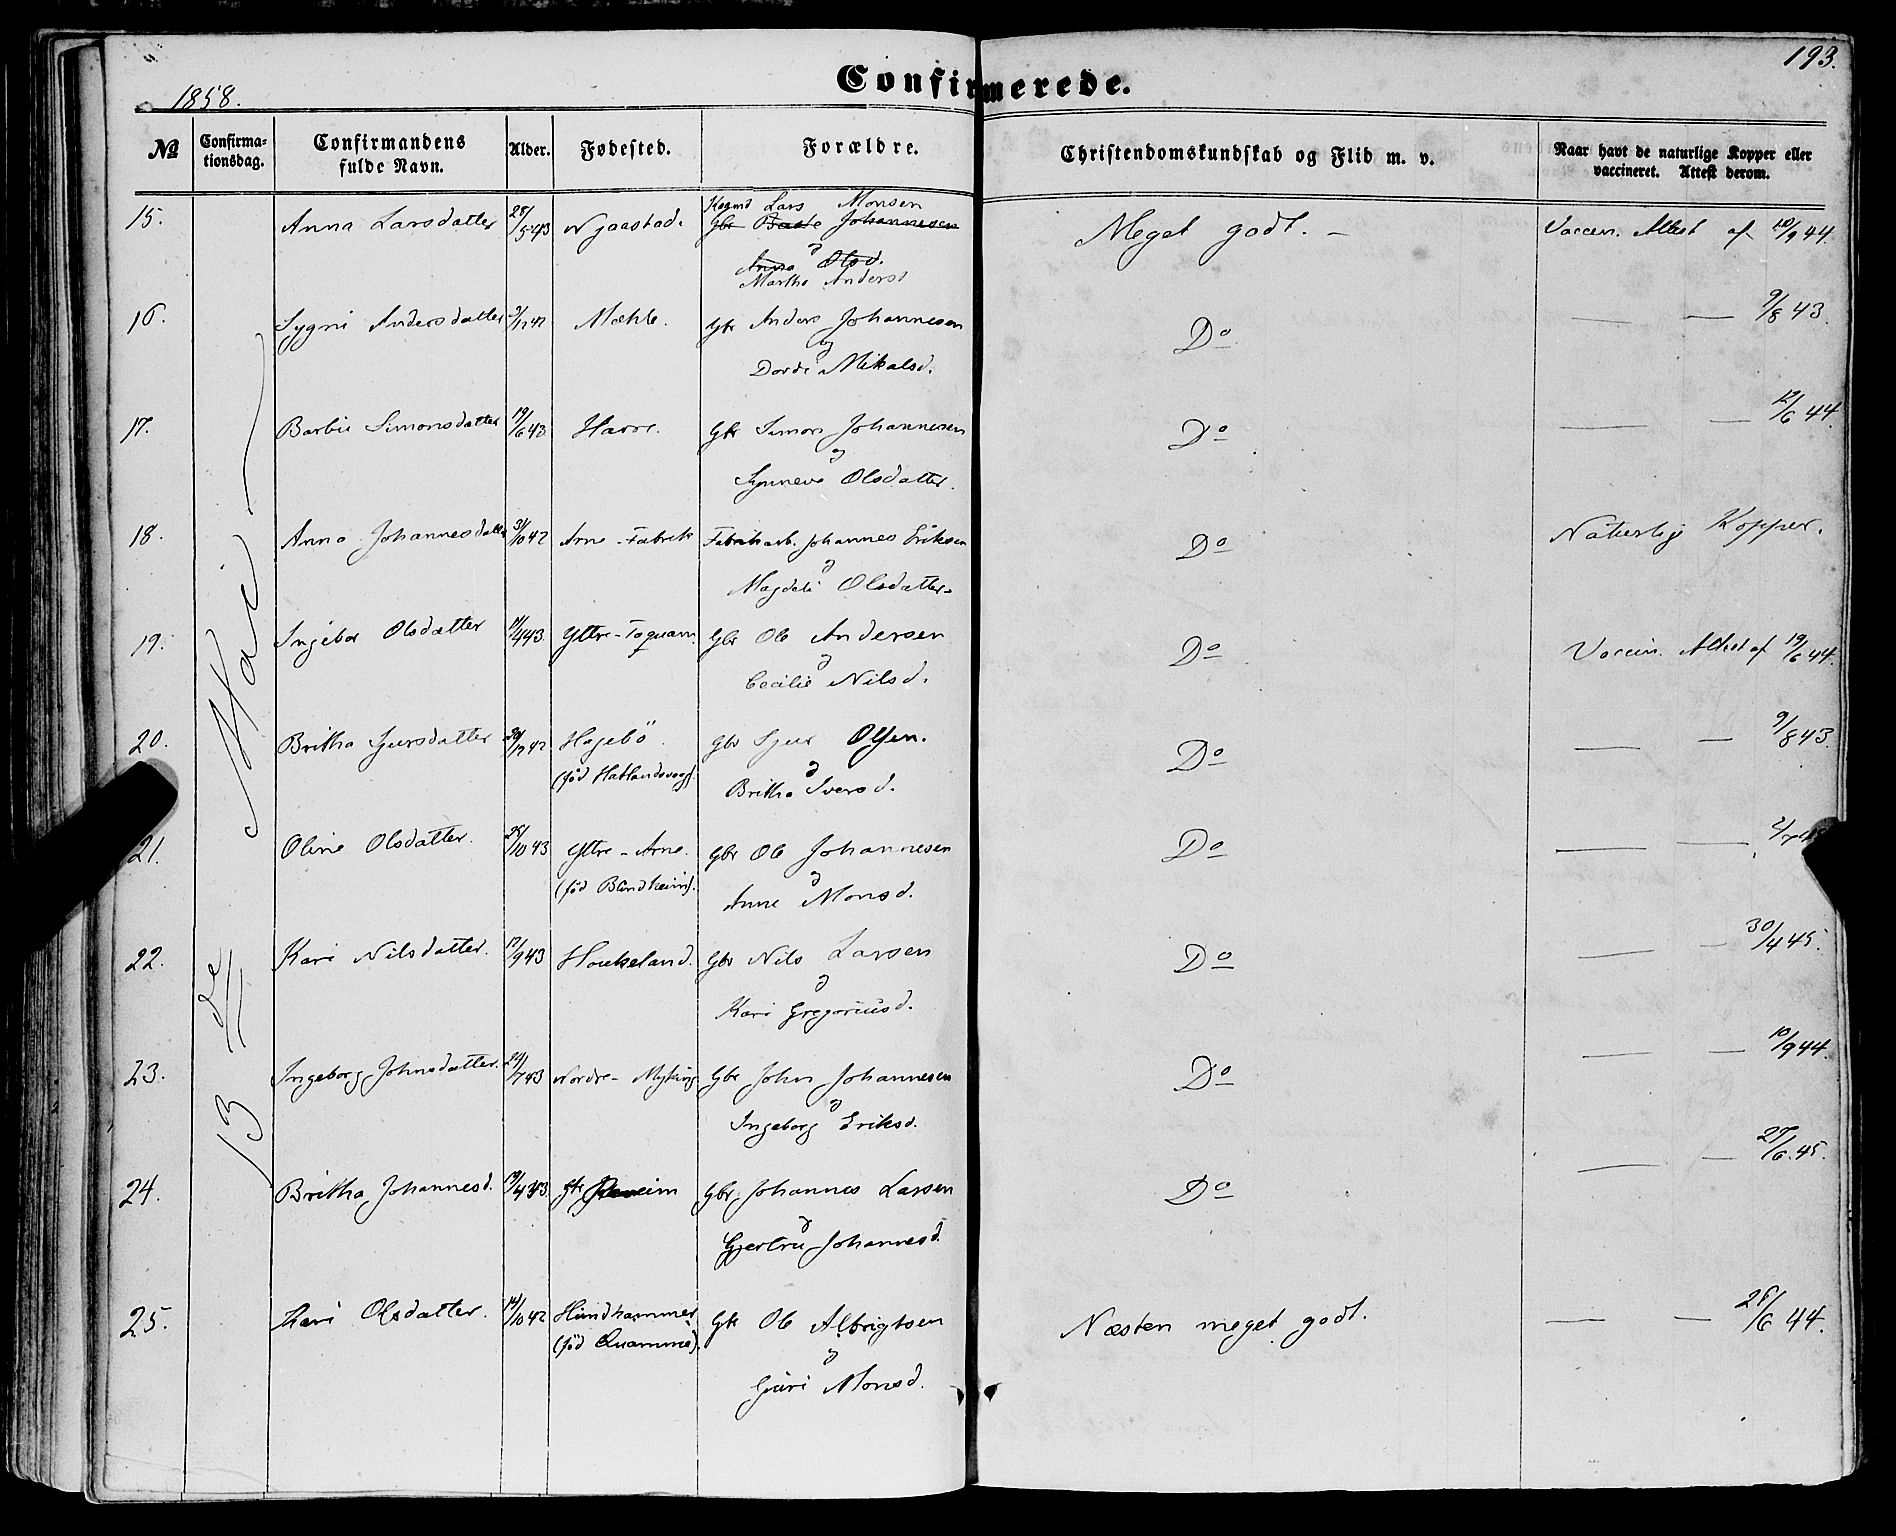 193.
1858.
Confirmerede.
No
Confirma-
tionsdag.
Confirmandens
fulde Navn.
Alder.
Fødested.
Forældre.
Christendomskundskab og Flid m. v.
Naar havt de naturlige Kopper eller
vaccineret. Attest derom.
13de Mai
15. Anna Larsdatter 28/5 43 Lars Monsen
Gbr Johannesen
Anna Olsd.
Martha Andersd
Meget godt. Vaccin. Attest af 10/9 44.
16. Sygni Andersdatter 3/12 42 Mæhle. Gbr Anders Johannesen
og
Dorde Mikalsd.
Do — — 9/8 43.
17. Barbie Simonsdatter 19/6 43 Havre. Gbr Simon Johannesen
og
Synneve Olsdatter.
Do — — 12/6 44.
18. Anna Johannesdatter 31/10 42 Arne-Fabrik Fabrikarb. Johannes Eriksen
og
Magdeli Olsdatter
Do Naturlig Kopper.
19. Ingebor Olsdatter 11/4 43. Yttre-Toquam Gbr Ole Andersen
og
Cecilie Nilsd.
Do Vaccin. Attest af 19/6 44.
20. Britha Sjursdatter 42 Hagebö Gbr Sjur Olsen.
(föd Hatlandsvaag). og
Britha Iversd.
Do — — 9/8 43.
21. Oline Olsdatter. 28/10 43 Yttre-Arne. Gbr Ole Johannesen
(föd Blindheim). og
Anne Monsd.
Do — —
22. Kari Nilsdatter. 17/9 43 Houkeland. Gbr Nils Larsen
og
Kari Gregoriusd.
Do — — 30/4 45.
23. Ingeborg Johnsdatter. 24/7 43 Nordre-Myking Gbr John Johannesen
og
Ingeborg Eriksd.
Do — — 10/9 44.
24. Britha Johannesd. 19/4 43 Gbr Johannes Larsen
og
Gjertru Johannesd.
Do — — 27/6 45.
25. Kari Olsdatter. 14/10 42 Hindhammer Gbr Ole Albrigtsen
(föd Quamme). og
Guri Monsd.
Næsten meget godt. — — 28/6 44.